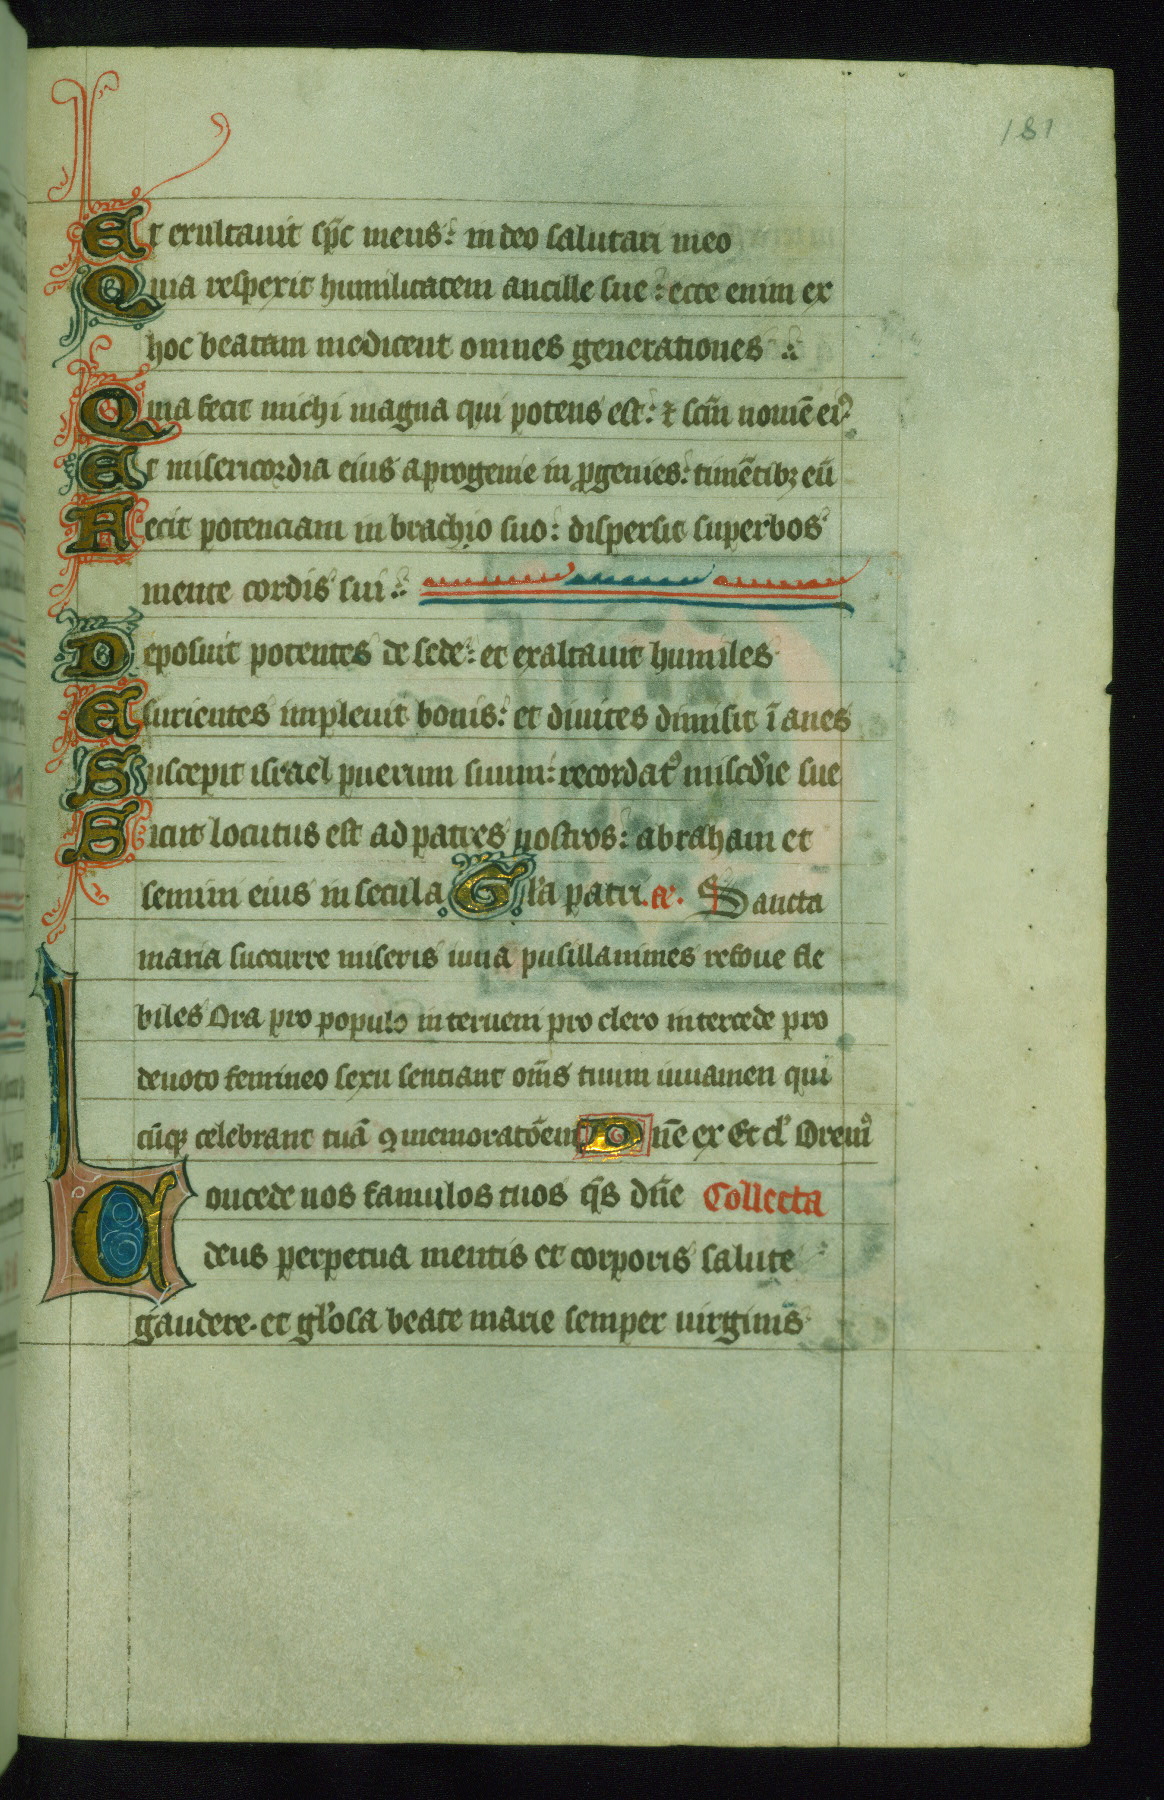 181
Et exultauit sp̄c meus: in deo salutari meo
Quia respexit humilitatem ancille sue: ecce enim ex
hoc beatam me dicent omnes generationes
Quia fecit michi magna qui potens est: ⁊ sc̄m nomē eiꝰ
Et misericordia eius a progenie in ꝓgenies: timētibꝫ eū
Fecit potenciam in brachio suo: dispersit superbos
mente cordis sui:
Deposuit potentes de sede: et exaltauit humiles
Esurientes impleuit bonis: et diuites dimisit īanes
Suscepit israel puerum suum: recordatꝰ miscd̄ie sue
Sicut locutus est ad patres nostros: abraham et
semini eius in secula Gl̄a patri. ⁊c̄. Sancta
maria succurre miseris iuua pusillanimes refoue fle
biles Ora pro populo interueni pro clero intercede pro
deuoto femineo sexu senciant om̄s tuum iuuamen qui
cūqꝫ celebrant tuā ꝯmemoratōem Dn̄e ex Et cl̄ Oremꝰ
Concede nos famulos tuos q̄s dn̄e Collecta
deus perpetua mentis et corporis salute
gaudere. et gl̄osa beate marie semper uirginis